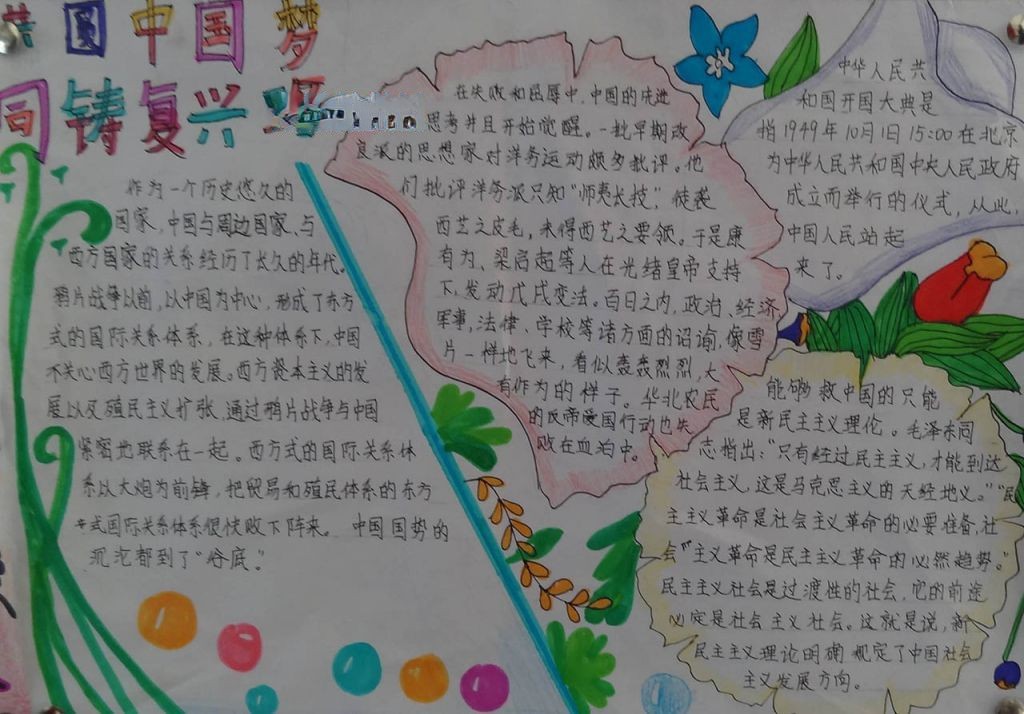 共圆中国梦
同铸复兴
作为一个历史悠久的
国家,中国与周边国家、与
西方国家的关系经历了太久的年代。
鸦片战争以前,以中国为中心,形成了东方
式的国际关系体系,在这种体系下,中国
不关心西方世界的发展。西方资本主义的发
展以及殖民主义扩张,通过鸦片战争与中国
紧密地联系在一起。西方式的国际关系体
系以大炮为前锋,把贸易和殖民体系的东方
式国际关系体系很快败下阵来。中国国势的
沉沦都到了“谷底。”
在失败和屈辱中,中国的先进
思考并且开始觉醒。一批早期改
良派的思想家对洋务运动颇多批评。他
们批评洋务派只知“师夷长技”,徒袭
西艺之皮毛,未得西艺之要领。于是康
有为、梁启超等人在光绪皇帝支持
下,发动戊戌变法。百日之内,政治、经济
军事,法律、学校等诸方面的诏谕,像雪
片一样地飞来,看似轰轰烈烈,大
有作为的样子。华北农民
的反帝爱国行动也失
败在血泊中。
中华人民共
和国开国大典是
指1949年10月1日15:00在北京
为中华人民共和国中央人民政府
成立而举行的仪式,从此,
中国人民站起
来了。
能够救中国的只能
是新民主主义理论。毛泽东同
志指出:“只有经过民主主义,才能到达
社会主义,这是马克思主义的天经地义。”“民
主主义革命是社会主义革命的必要准备,社
会“主义革命是民主主义革命的必然趋势。”
民主主义社会是过渡性的社会,它的前途
必定是社会主义社会。这就是说,新
民主主义理论明确规定了中国社会
主义发展方向。